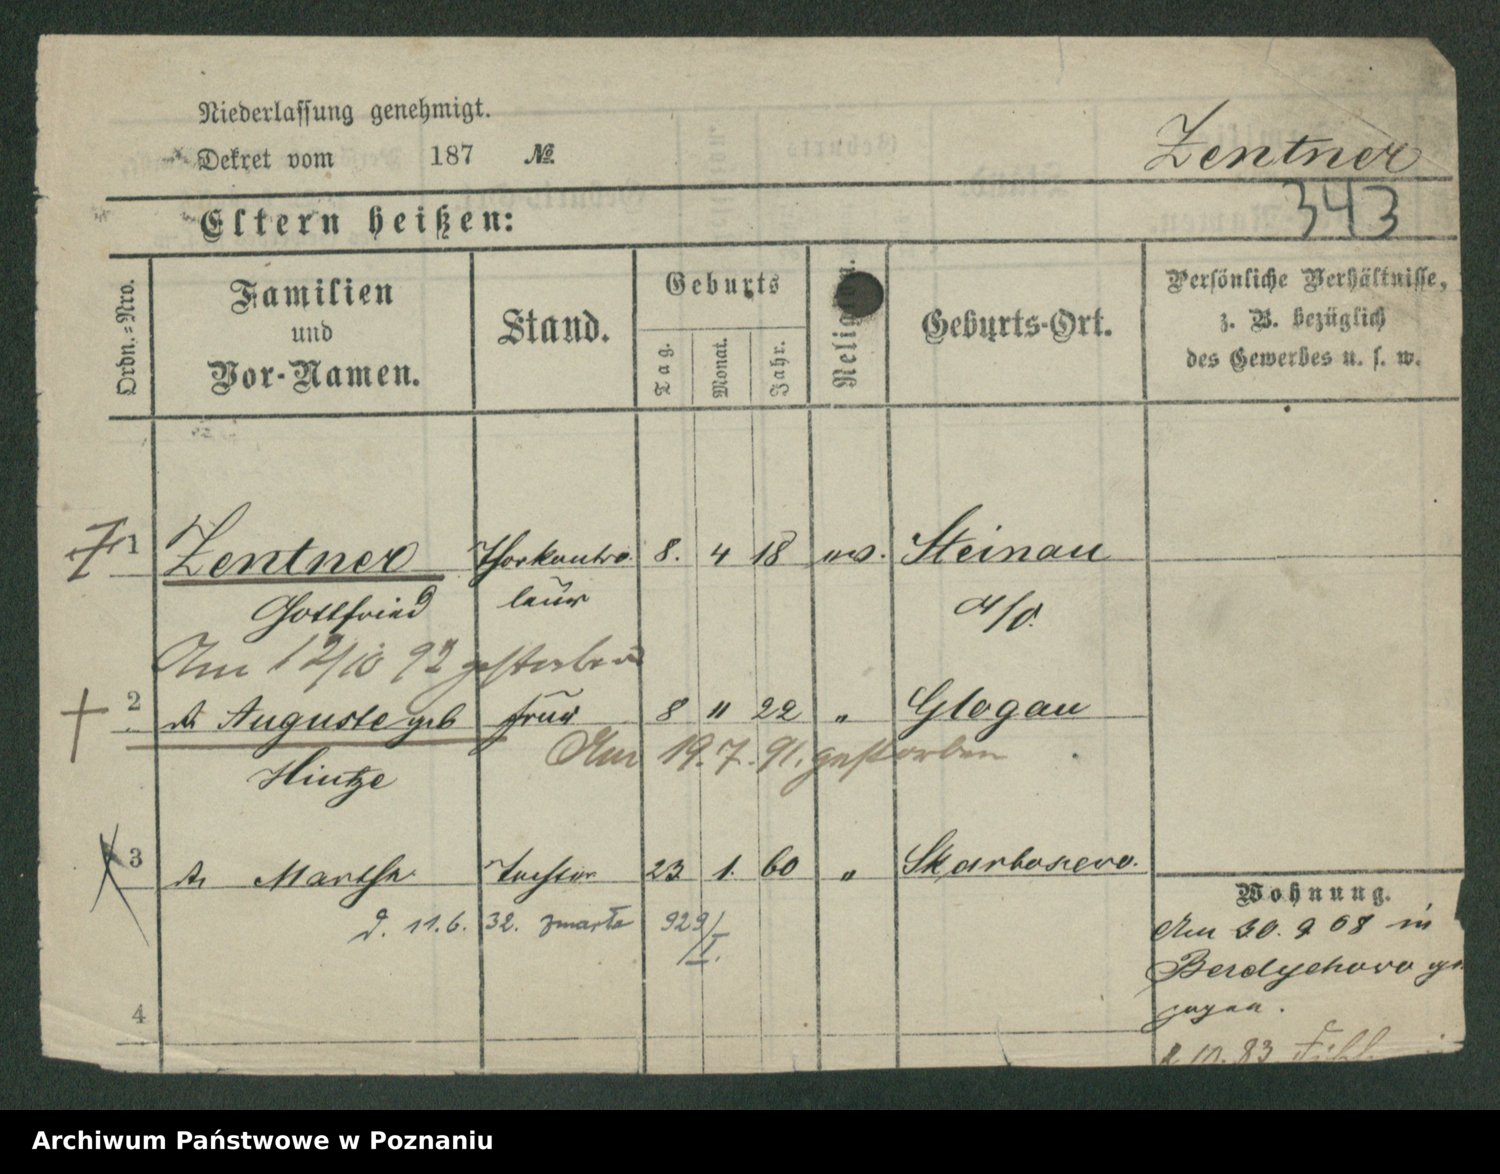 Niederlassung genehmigt.
Dekret vom 187 №
Zentner
343
Eltern heißen:
Ordn.=Nro.
Familien
und
Vor-Namen.
Stand.
Geburts
Tag.
Monat.
Jahr.
Geburts-Ort.
Persönliche Verhältnisse,
z. B. bezüglich
des Gewerbes u. s. w.
1 Zentner 8. 4 18 ev. Steinau
Gottfried a/O.
Am 12/10 92 gestorben
2 Auguste geb Frau 8 " 22 " Glogau
Hintze
Am 19.7.91. gestorben
3 Martha Tochter 23 1. 60 " Skarboszewo.
d. 11.6. 32. zmarła 929/I.
Wohnung.
Am 30. 9 08 in
Berdychowo ge
zogen.
4
10. 83
Archiwum Państwowe w Poznaniu